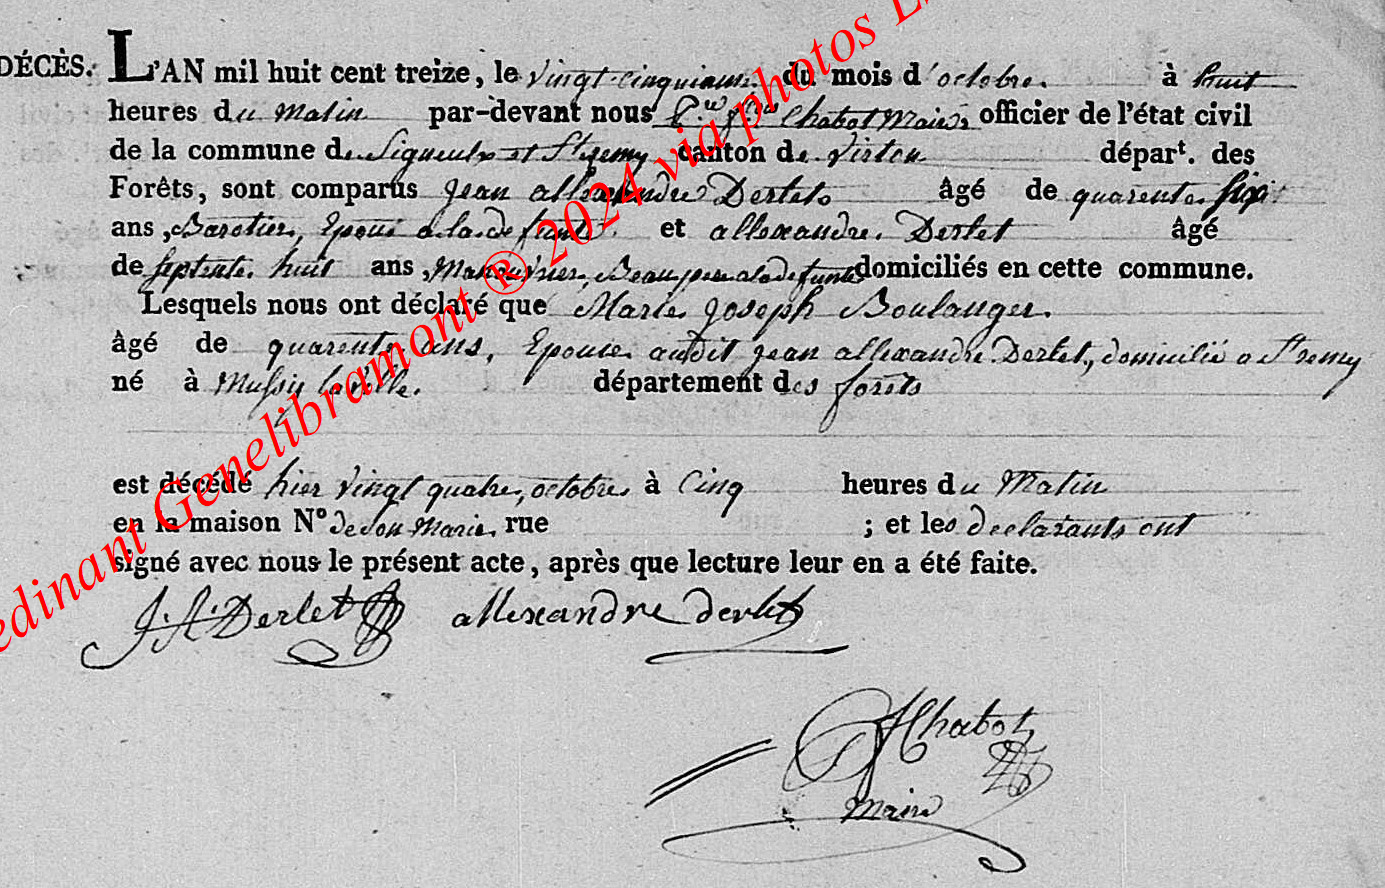 DÉCÈS. L'AN mil huit cent treize, le vingt cinquieme du mois d'octobre à huit
heures du matin par-devant nous Chabot Maire officier de l'état civil
de la commune de Signeulx et St remy canton de Virton départ. des
Forêts, sont comparus jean allexandre Derlet âgé de quarente six
ans, Epoux a la defunte et allexandre Derlet âgé
de septente huit ans, Manouvrier, Beaupere a la defunte domiciliés en cette commune.
Lesquels nous ont déclaré que Marie joseph Boulanger
âgé de quarente ans, Epouse audit jean allexandre Derlet, domicilié a St remy
né à Mussy la ville département des forêts
est décédé hier vingt quatre octobre à Cinq heures du Matin
en la maison N° de son Marie rue ; et les declarants ont
signé avec nous le présent acte, après que lecture leur en a été faite.
J. A. Derlet allexandre derlet
Chabot
Maire
edinant Genelibramont ® 2024 via photos